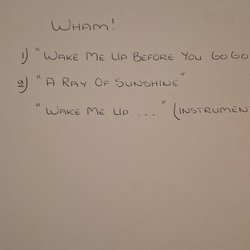 WHAM!
1) "WAKE ME UP BEFORE YOU GO GO
2) "A RAY OF SUNSHINE"
"WAKE ME UP...." (INSTRUMEN